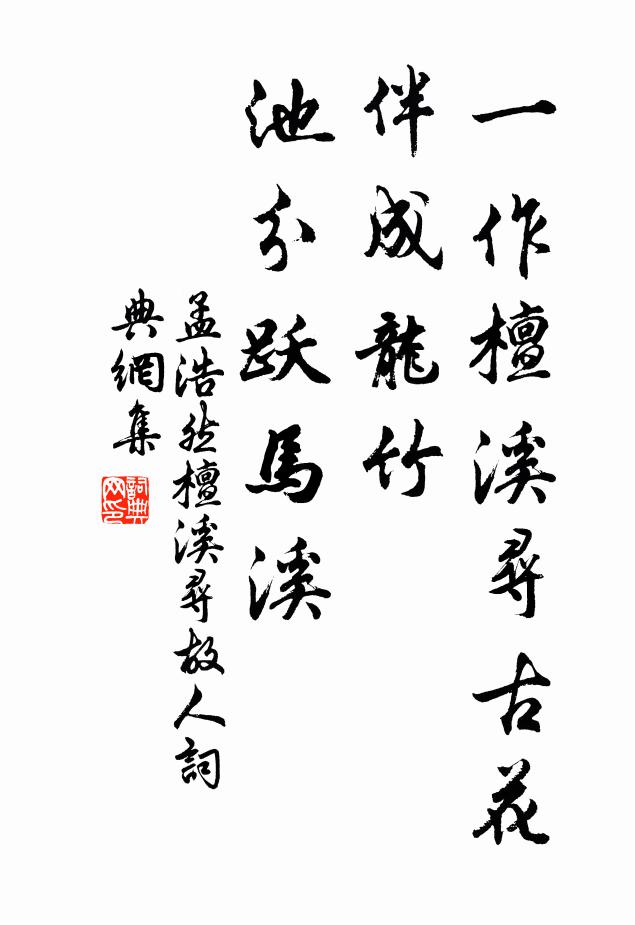 一作檀溪尋古花
伴成龍竹
池分躍馬溪
孟浩然檀溪尋故人詞
典網集
詞典
网印